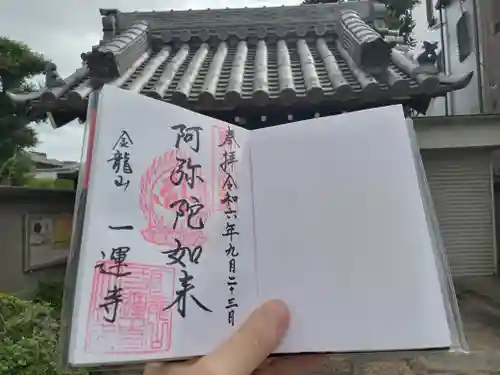 奉拝 令和六年九月二十三日
阿弥陀如来
金龍山 一運寺